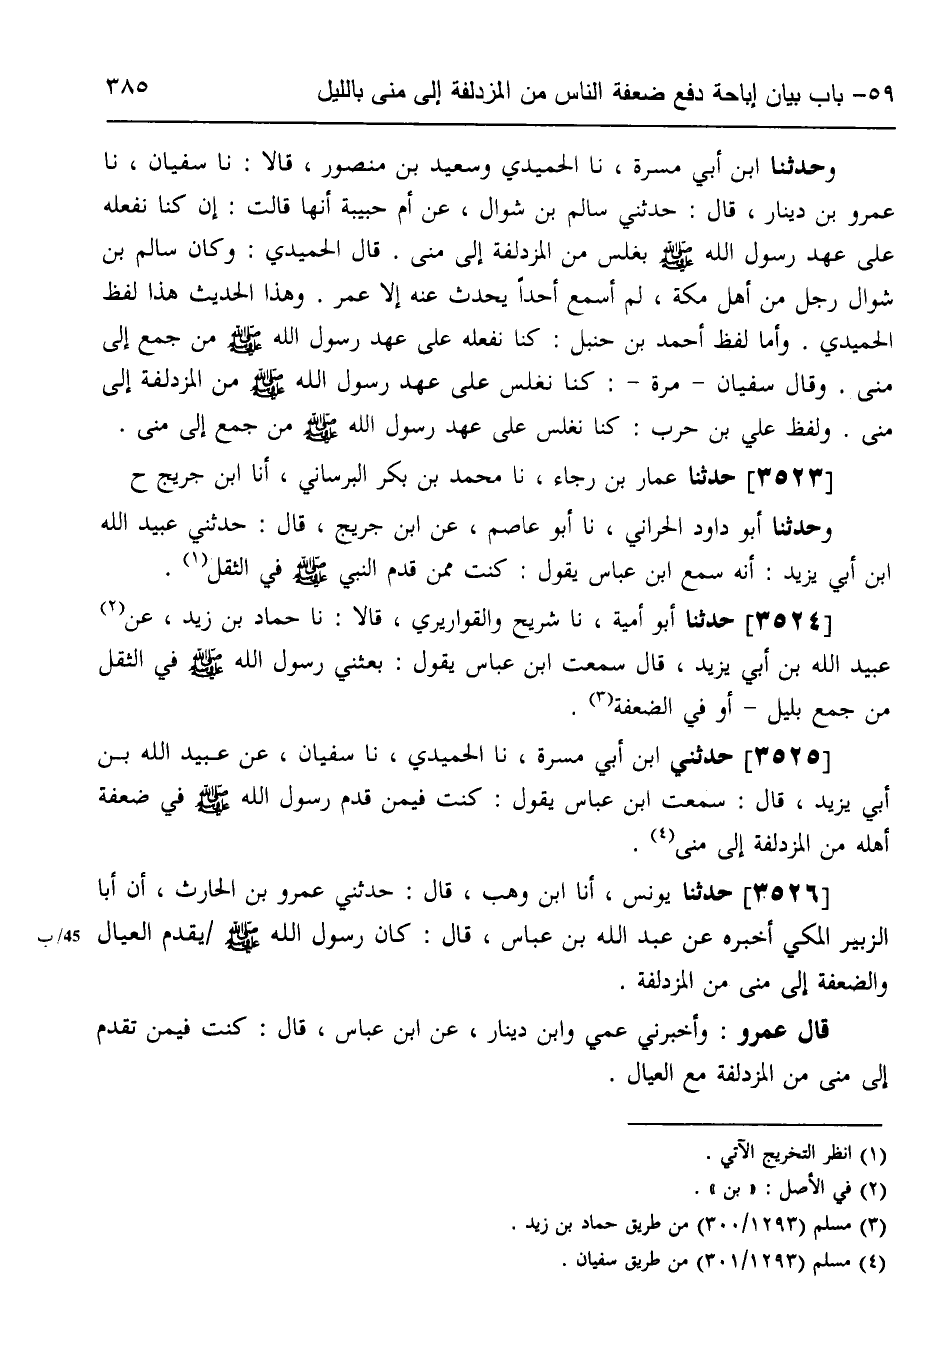 ٥٩- باب بيان إباحة دفع ضعفة الناس من المزدلفة إلى منى بالليل ٣٨٥
وحدثنا ابن أبي مسرة ، نا الحميدي وسعيد بن منصور ، قالا : نا سفيان ، نا
عمرو بن دينار ، قال : حدثني سالم بن شوال ، عن أم حبيبة أنها قالت : إن كنا نفعله
على عهد رسول الله ﷺ بغلس من المزدلفة إلى منى . قال الحميدي : وكان سالم بن
شوال رجل من أهل مكة ، لم أسمع أحداً يحدث عنه إلا عمر . وهذا الحديث هذا لفظ
الحميدي . وأما لفظ أحمد بن حنبل : كنا نفعله على عهد رسول الله ﷺ من جمع إلى
منى . وقال سفيان - مرة - : كنا نغلس على عهد رسول الله ﷺ من المزدلفة إلى
منى . ولفظ علي بن حرب : كنا نغلس على عهد رسول الله ﷺ من جمع إلى منى .
[٣٥٢٣] حدثنا عمار بن رجاء ، نا محمد بن بكر البرساني ، أنا ابن جريج ح
وحدثنا أبو داود الحراني ، نا أبو عاصم ، عن ابن جريج ، قال : حدثني عبيد الله
ابن أبي يزيد : أنه سمع ابن عباس يقول : كنت ممن قدم النبي ﷺ في الثقل(١) .
[٣٥٢٤] حدثنا أبو أمية ، نا شريح والقواريري ، قالا : نا حماد بن زيد ، عن(٢)
عبيد الله بن أبي يزيد ، قال سمعت ابن عباس يقول : بعثني رسول الله ﷺ في الثقل
من جمع بليل - أو في الضعفة(٣) .
[٣٥٢٥] حدثني ابن أبي مسرة ، نا الحميدي ، نا سفيان ، عن عبيد الله بن
أبي يزيد ، قال : سمعت ابن عباس يقول : كنت فيمن قدم رسول الله ﷺ في ضعفة
أهله من المزدلفة إلى منى(٤) .
[٣٥٢٦] حدثنا يونس ، أنا ابن وهب ، قال : حدثني عمرو بن الحارث ، أن أبا
الزبير المكي أخبره عن عبد الله بن عباس ، قال : كان رسول الله ﷺ /يقدم العيال 45/ب
والضعفة إلى منى من المزدلفة .
قال عمرو : وأخبرني عمي وابن دينار ، عن ابن عباس ، قال : كنت فيمن تقدم
إلى منى من المزدلفة مع العيال .
(١) انظر التخريج الآتي .
(٢) في الأصل : « بن » .
(٣) مسلم (٣٠٠/١٢٩٣) من طريق حماد بن زيد .
(٤) مسلم (٣٠١/١٢٩٣) من طريق سفيان .